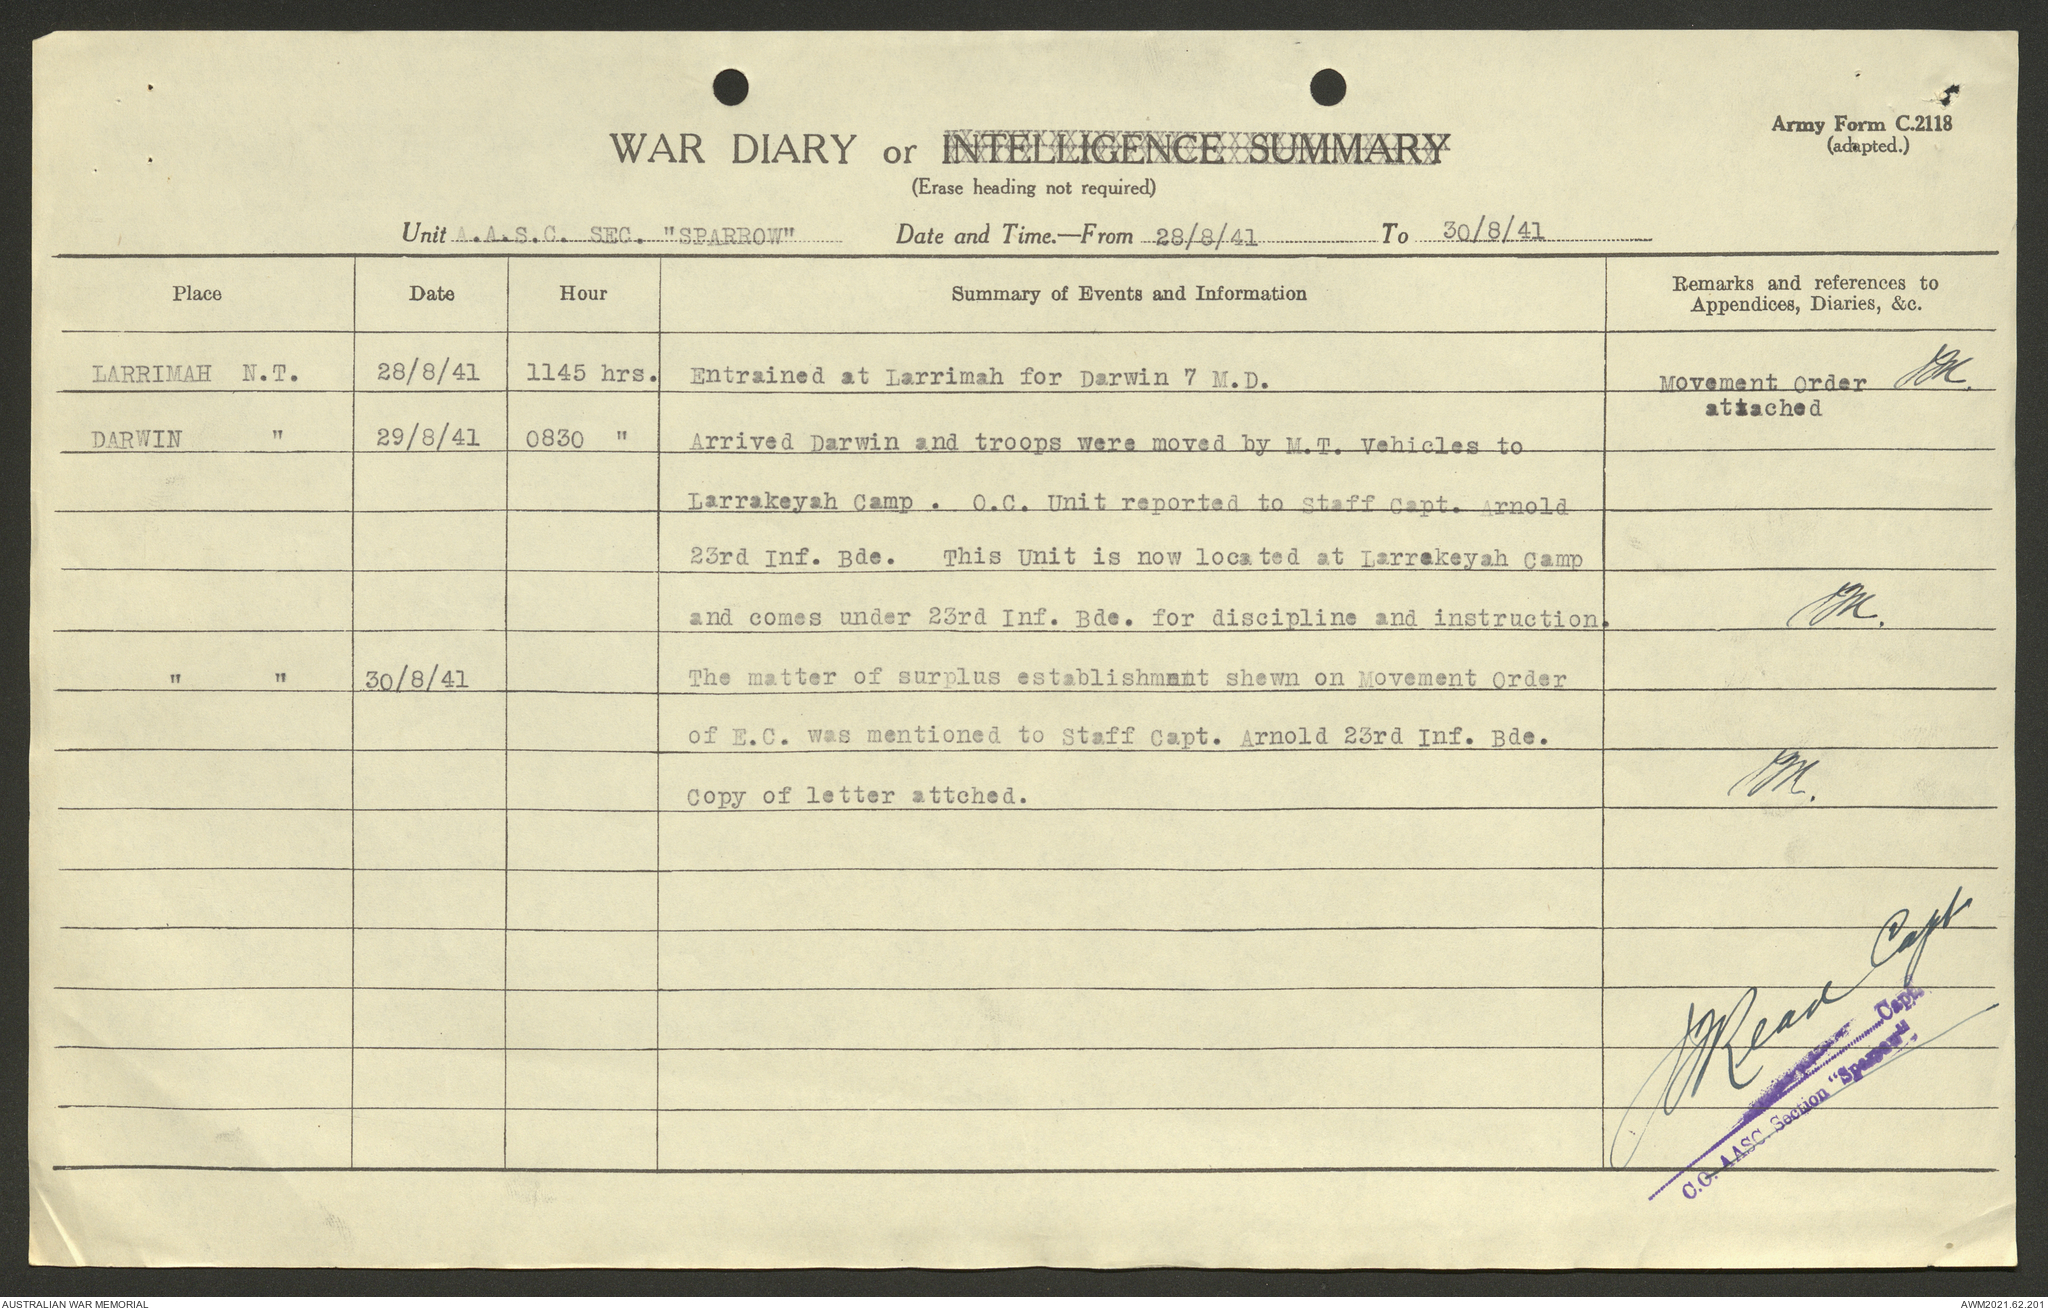 5
Army Form C.2118
(adapted.)
WAR DIARY or INTELLIGENCE SUMMARY
(Erase heading not required)
Unit A.A.S.C. SEC. "SPARROW" Date and Time.—From 28/8/41 To 30/8/41
Place Date Hour Summary of Events and Information Remarks and references to
Appendices, Diaries, &c.
LARRIMAH N.T. 28/8/41 1145 hrs. Entrained at Larrimah for Darwin 7 M.D. Movement Order
attached
DARWIN " 29/8/41 0830 " Arrived Darwin and troops were moved by M.T. Vehicles to
Larrakeyah Camp . O.C. Unit reported to Staff Capt. Arnold
23rd Inf. Bde. This Unit is now located at Larrakeyah Camp
and comes under 23rd Inf. Bde. for discipline and instruction.
" " 30/8/41 The matter of surplus establishmnt shewn on Movement Order
of E.C. was mentioned to Staff Capt. Arnold 23rd Inf. Bde.
Copy of letter attched.
Read Capt
Capt.
C.O. AASC. Section "Sparrow"
AUSTRALIAN WAR MEMORIAL AWM2021.62.201